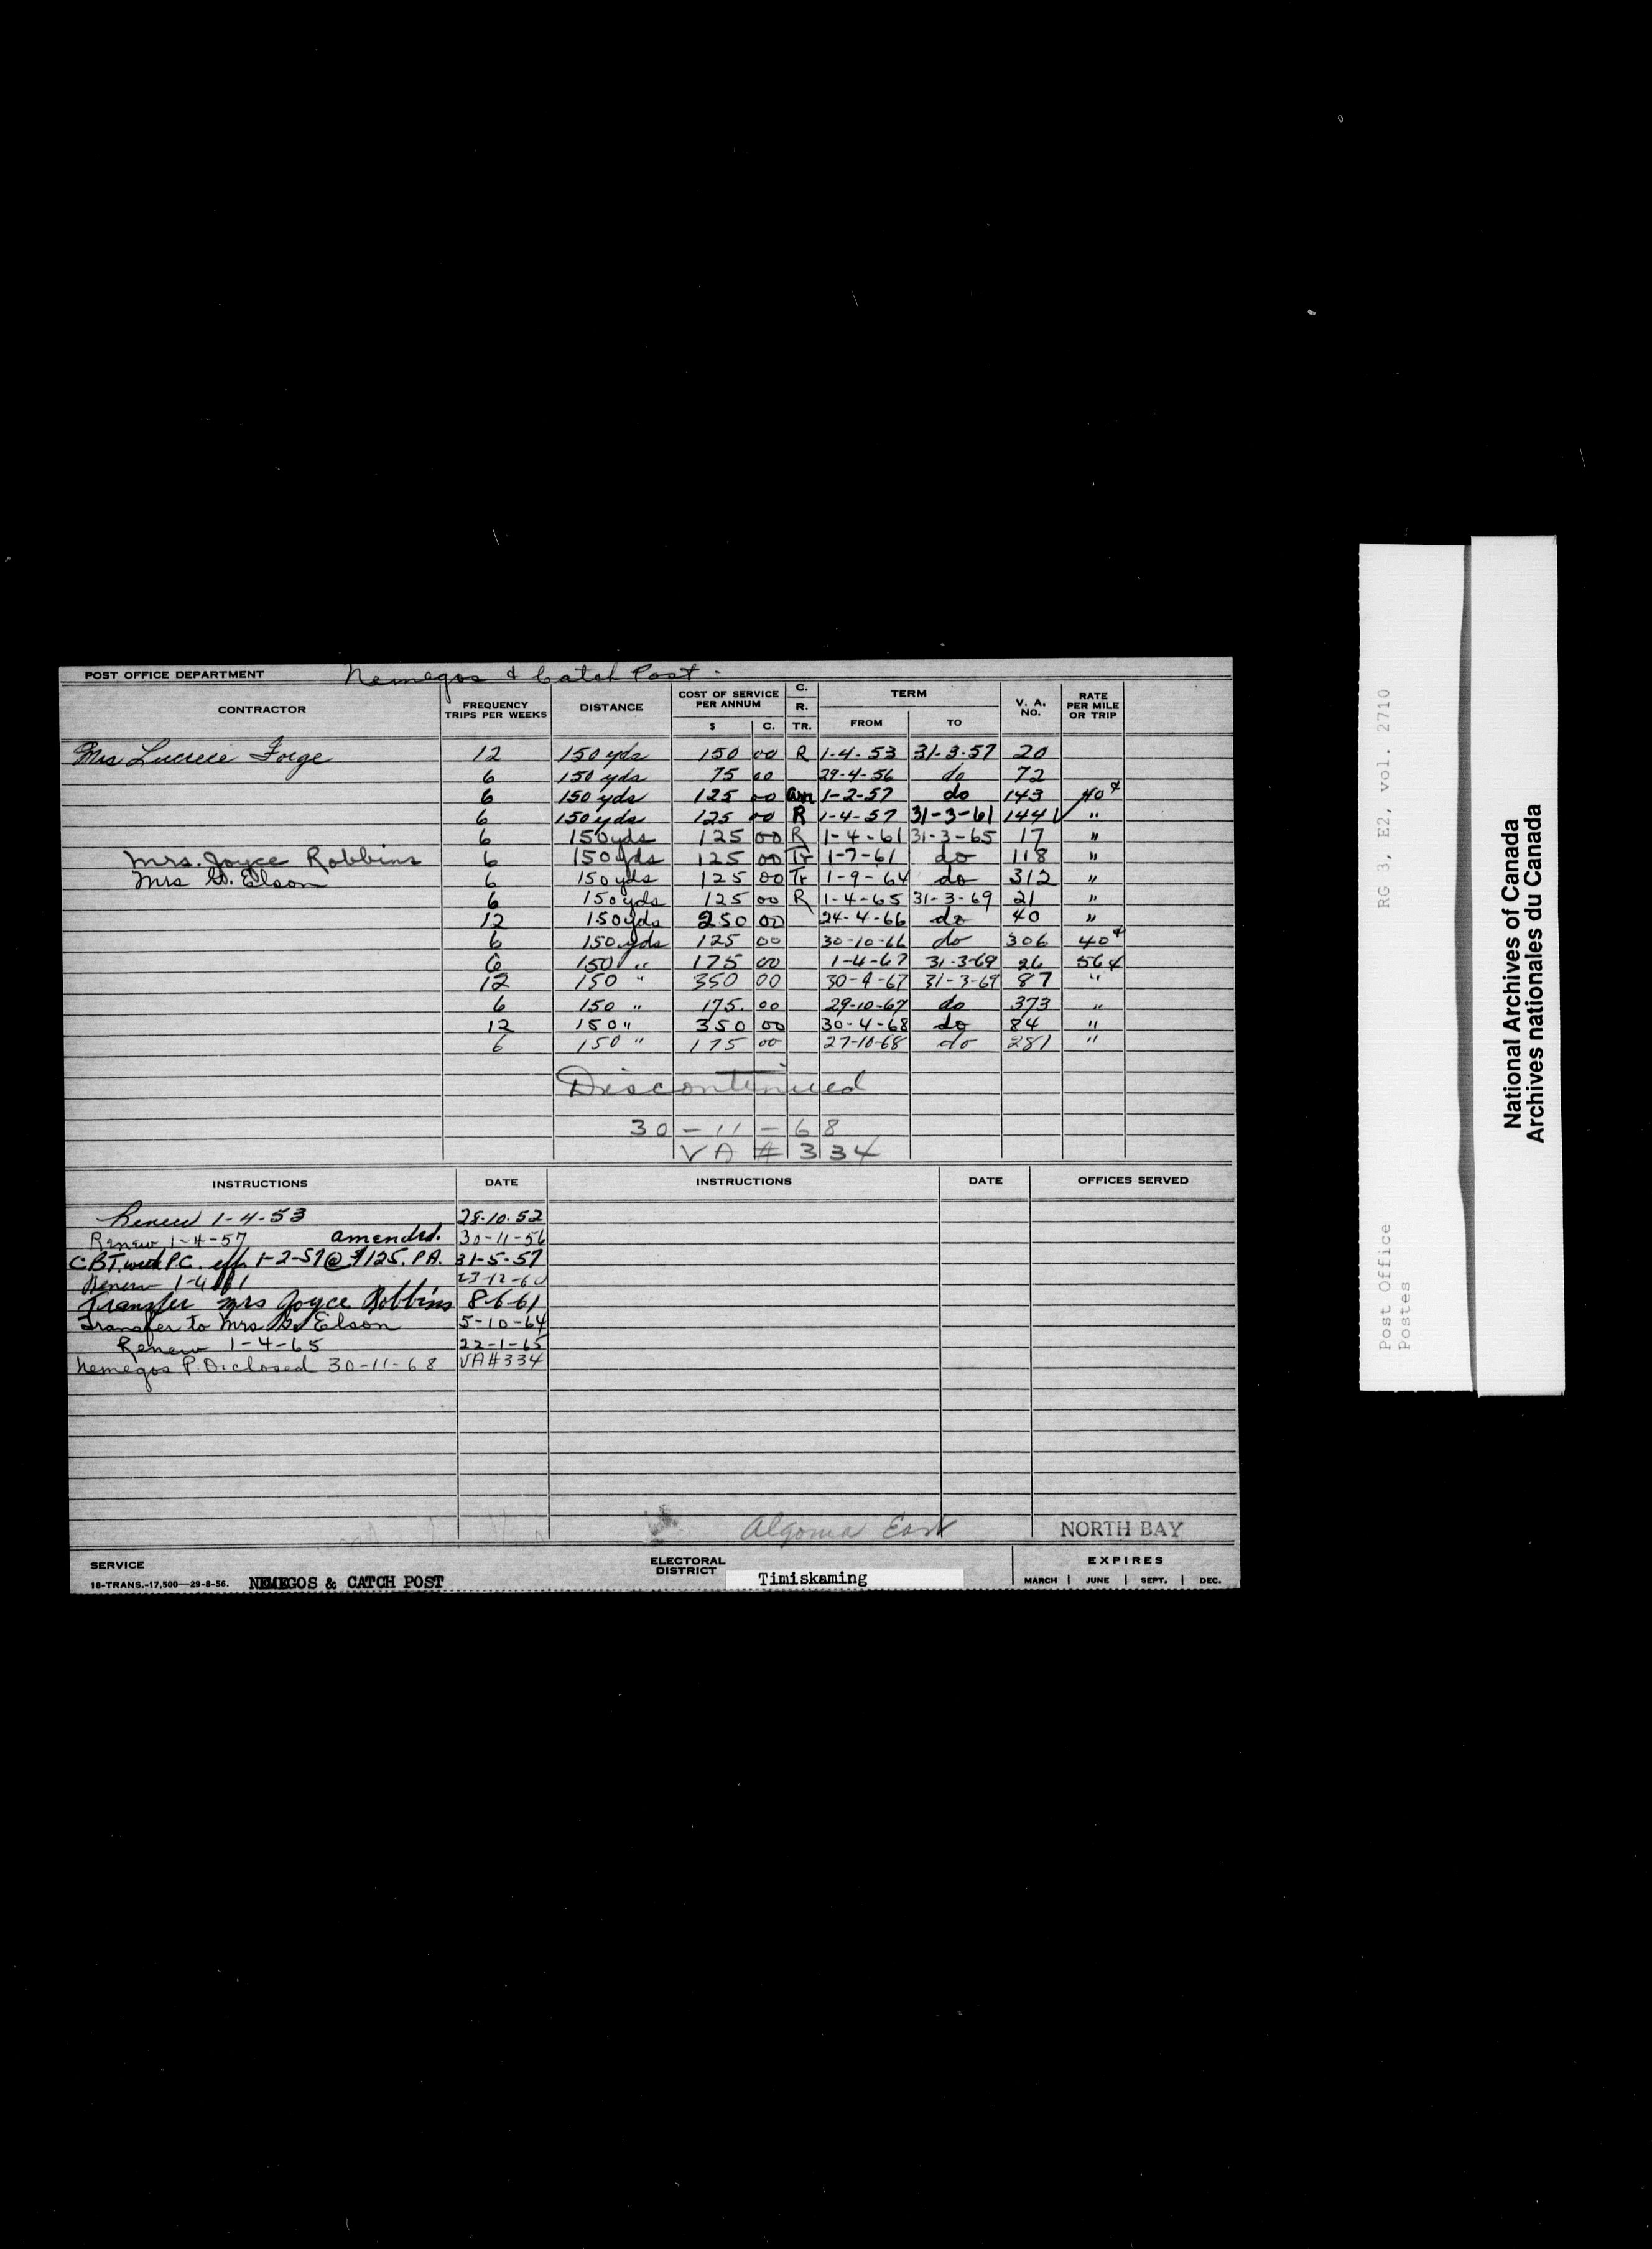 POST OFFICE DEPARTMENT Nemegos & Catch Post.
CONTRACTOR FREQUENCY TRIPS PER WEEKS DISTANCE COST OF SERVICE PER ANNUM $ C. C. R. TR. TERM FROM TO V. A. NO. RATE PER MILE OR TRIP
Mrs Forge 12 150 yds 150 00 R 1-4-53 31-3-57 20
6 150 yds 75 00 29-4-56 do 72
6 150 yds 125 00 am 1-2-57 do 143 40¢
6 150 yds 125 00 R 1-4-57 31-3-61 144 "
6 150 yds 125 00 R 1-4-61 31-3-65 17 "
Mrs. Joyce Robbins 6 150 yds 125 00 Tr 1-7-61 do 118 "
Mrs G. Elson 6 150 yds 125 00 Tr 1-9-64 do 312 "
6 150 yds 125 00 R 1-4-65 31-3-69 21 "
12 150 yds 250 00 24-4-66 do 40 "
6 150 yds 125 00 30-10-66 do 306 40¢
6 150 " 175 00 1-4-67 31-3-69 26 56¢
12 150 " 350 00 30-4-67 31-3-69 87 "
6 150 " 175.00 29-10-67 do 373 "
12 150 " 350 00 30-4-68 do 84 "
6 150 " 175 00 27-10-68 do 281 "
Discontinued
30-11-68
VA # 334
INSTRUCTIONS DATE INSTRUCTIONS DATE OFFICES SERVED
Renew 1-4-53 28-10-52
Renew 1-4-57 amended. 30-11-56
C.B.T. with P.C. eff. 1-2-57 @ $125. P.A. 31-5-57
Renew 1-4-61 23-12-60
Transfer Mrs Joyce Robbins 8-6-61
Transfer to Mrs G. Elson 5-10-64
Renew 1-4-65 22-1-65
Nemegos P.O. closed 30-11-68 VA#334
Algoma East NORTH BAY
SERVICE ELECTORAL DISTRICT Timiskaming EXPIRES
18-TRANS.-17,500—29-8-56. NEMEGOS & CATCH POST MARCH | JUNE | SEPT. | DEC.
Post Office RG 3, E2, vol. 2710
Postes
National Archives of Canada
Archives nationales du Canada